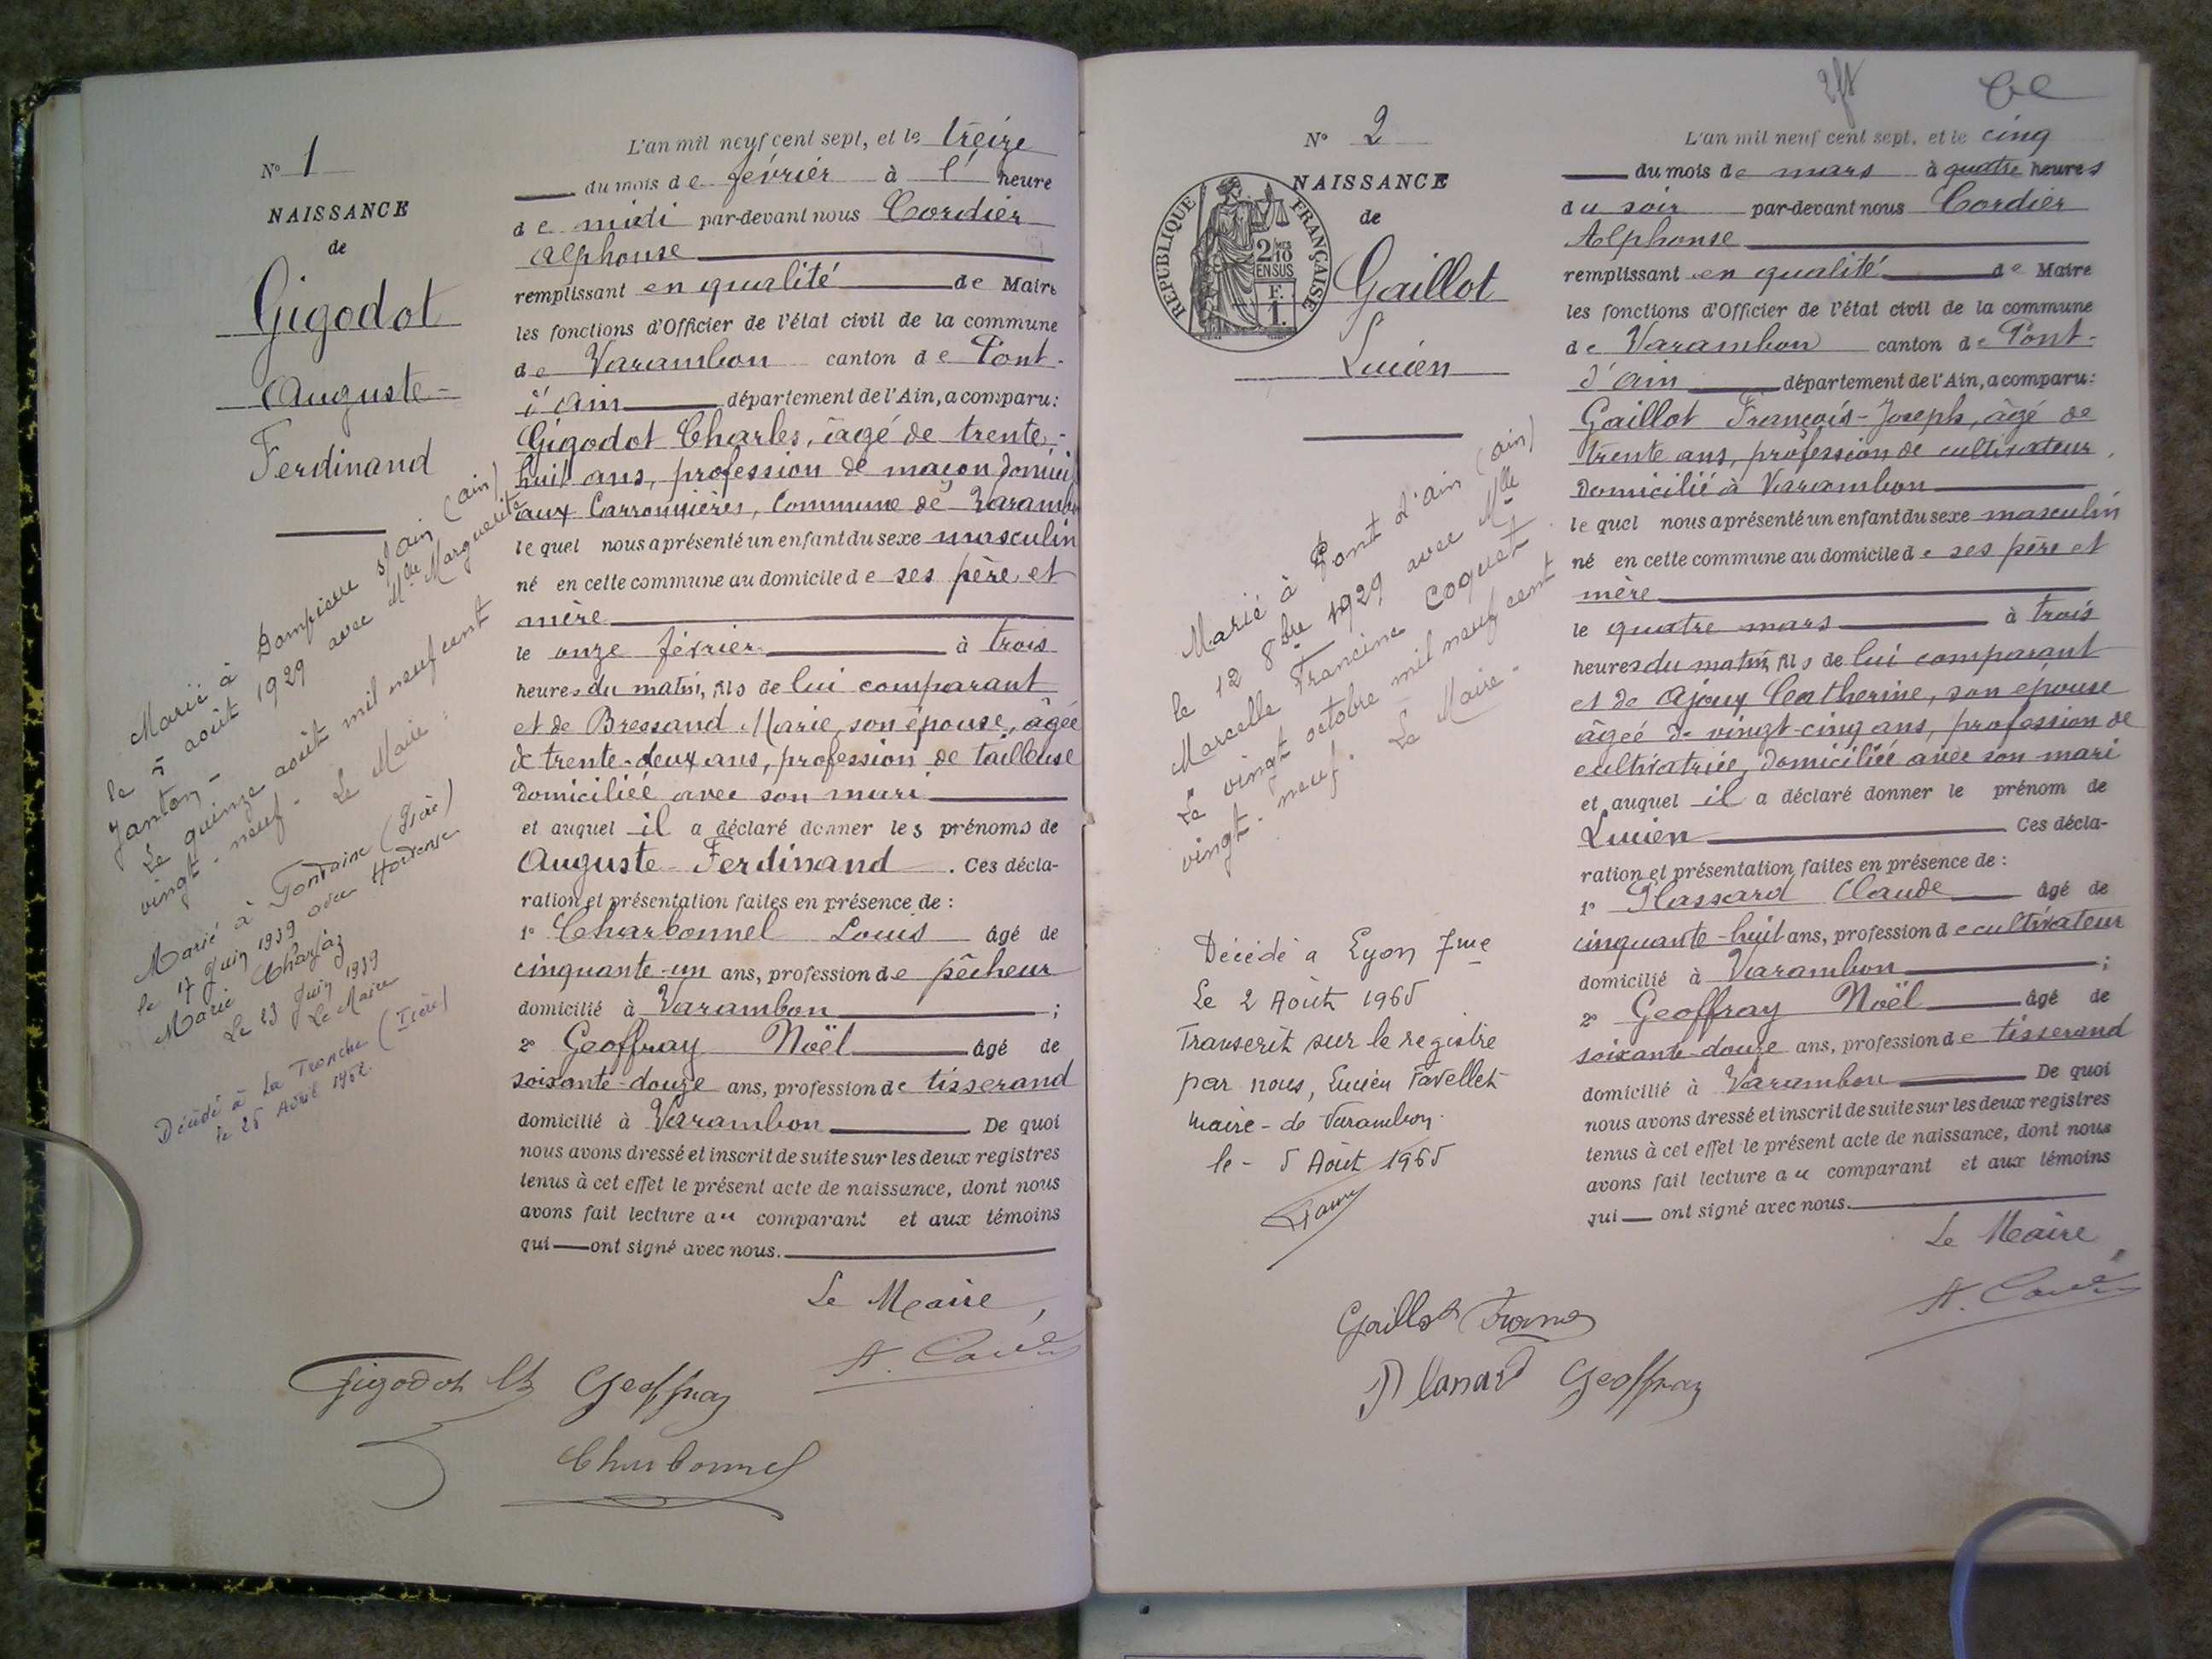 N° 1
NAISSANCE
de
Gigodot
Auguste-
Ferdinand
Marié à Dompierre s/ Ain (Ain)
le 5 août 1929 avec Mlle Marguerite
Janton -
Le quinze août mil neuf cent
vingt-neuf - Le Maire :
Marié à Fontaine (Isère)
le 17 Juin 1939 avec Hortense
Marie
Le 23 Juin 1939
Le Maire
Décédé à La Tronche (Isère)
le 25 Avril 1962.
L'an mil neuf cent sept, et le treize
du mois de février à l' heure
de midi par-devant nous Cordier
Alphonse
remplissant en qualité de Maire
les fonctions d'Officier de l'état civil de la commune
de Varambon canton de Pont-
d'Ain département de l'Ain, a comparu:
Gigodot Charles, âgé de trente-
huit ans, profession de maçon domici
aux Carronnières, Commune de Varambon
le quel nous a présenté un enfant du sexe masculin
né en cette commune au domicile de ses père et
mère
le onze février à trois
heures du matin, fils de lui comparant
et de Bressand Marie, son épouse, âgée
de trente-deux ans, profession de tailleuse
domiciliée avec son mari
et auquel il a déclaré donner les prénoms de
Auguste-Ferdinand. Ces décla-
ration et présentation faites en présence de :
1° Charbonnel Louis âgé de
cinquante-un ans, profession de pêcheur
domicilié à Varambon ;
2° Geoffray Noël âgé de
soixante-douze ans, profession de tisserand
domicilié à Varambon De quoi
nous avons dressé et inscrit de suite sur les deux registres
tenus à cet effet le présent acte de naissance, dont nous
avons fait lecture au comparant et aux témoins
qui ont signé avec nous.
Le Maire,
A. Cordier
Gigodot Ch Geoffray
Charbonnel
N° 2
NAISSANCE
de
REPUBLIQUE FRANÇAISE
2/10 MES
EN SUS
F.
1.
Gaillot
Lucien
Marié à Pont d'Ain (Ain)
le 12 8bre 1929 avec Mlle
Marcelle Francine Coquet
Le vingt octobre mil neuf cent
vingt-neuf. Le Maire -
Décédé à Lyon 7me
Le 2 Août 1965
Transcrit sur le registre
par nous, Lucien Favellet
Maire - de Varambon.
le - 5 Août 1965
L'an mil neuf cent sept, et le cinq
du mois de mars à quatre heures
du soir par-devant nous Cordier
Alphonse
remplissant en qualité de Maire
les fonctions d'Officier de l'état civil de la commune
de Varambon canton de Pont-
d'Ain département de l'Ain, a comparu:
Gaillot François-Joseph, âgé de
trente ans, profession de cultivateur,
domicilié à Varambon
le quel nous a présenté un enfant du sexe masculin
né en cette commune au domicile de ses père et
mère
le quatre mars à trois
heures du matin, fils de lui comparant
et de Ajoux Catherine, son épouse
âgée de vingt-cinq ans, profession de
cultivatrice, domiciliée avec son mari
et auquel il a déclaré donner le prénom de
Lucien Ces décla-
ration et présentation faites en présence de :
1° Plassard Claude âgé de
cinquante-huit ans, profession de cultivateur
domicilié à Varambon ;
2° Geoffray Noël âgé de
soixante-douze ans, profession de tisserand
domicilié à Varambon De quoi
nous avons dressé et inscrit de suite sur les deux registres
tenus à cet effet le présent acte de naissance, dont nous
avons fait lecture au comparant et aux témoins
qui ont signé avec nous.
Le Maire,
A. Cordier
Gaillot
Plassard Geoffray